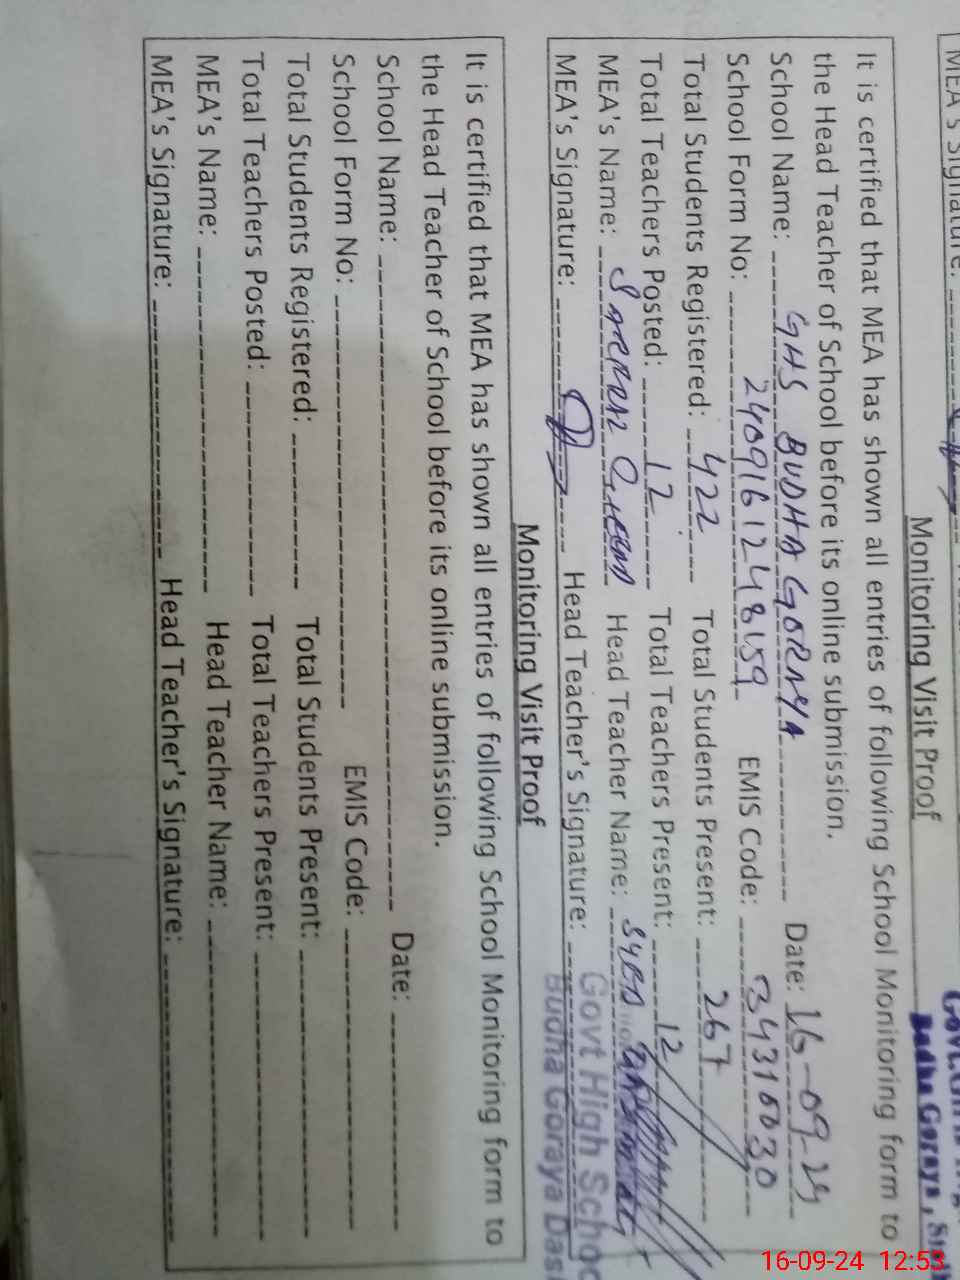 MEA's Signature:
Govt.Girls Hig
Budha Goraya,
Monitoring Visit Proof
It is certified that MEA has shown all entries of following School Monitoring form to
the Head Teacher of School before its online submission.
School Name: GHS BUDHA GORAYA Date: 16-09-24
School Form No: 2409161248159 EMIS Code: 34310030
Total Students Registered: 422 Total Students Present: 267
Total Teachers Posted: 12 Total Teachers Present: 12
MEA's Name: Head Teacher Name: SYED
MEA's Signature: Head Teacher's Signature:
Govt High Schoo
Budha Goraya Das
Monitoring Visit Proof
It is certified that MEA has shown all entries of following School Monitoring form to
the Head Teacher of School before its online submission.
School Name: Date:
School Form No: EMIS Code:
Total Students Registered: Total Students Present:
Total Teachers Posted: Total Teachers Present:
MEA's Name: Head Teacher Name:
MEA's Signature: Head Teacher's Signature:
16-09-24 12:53